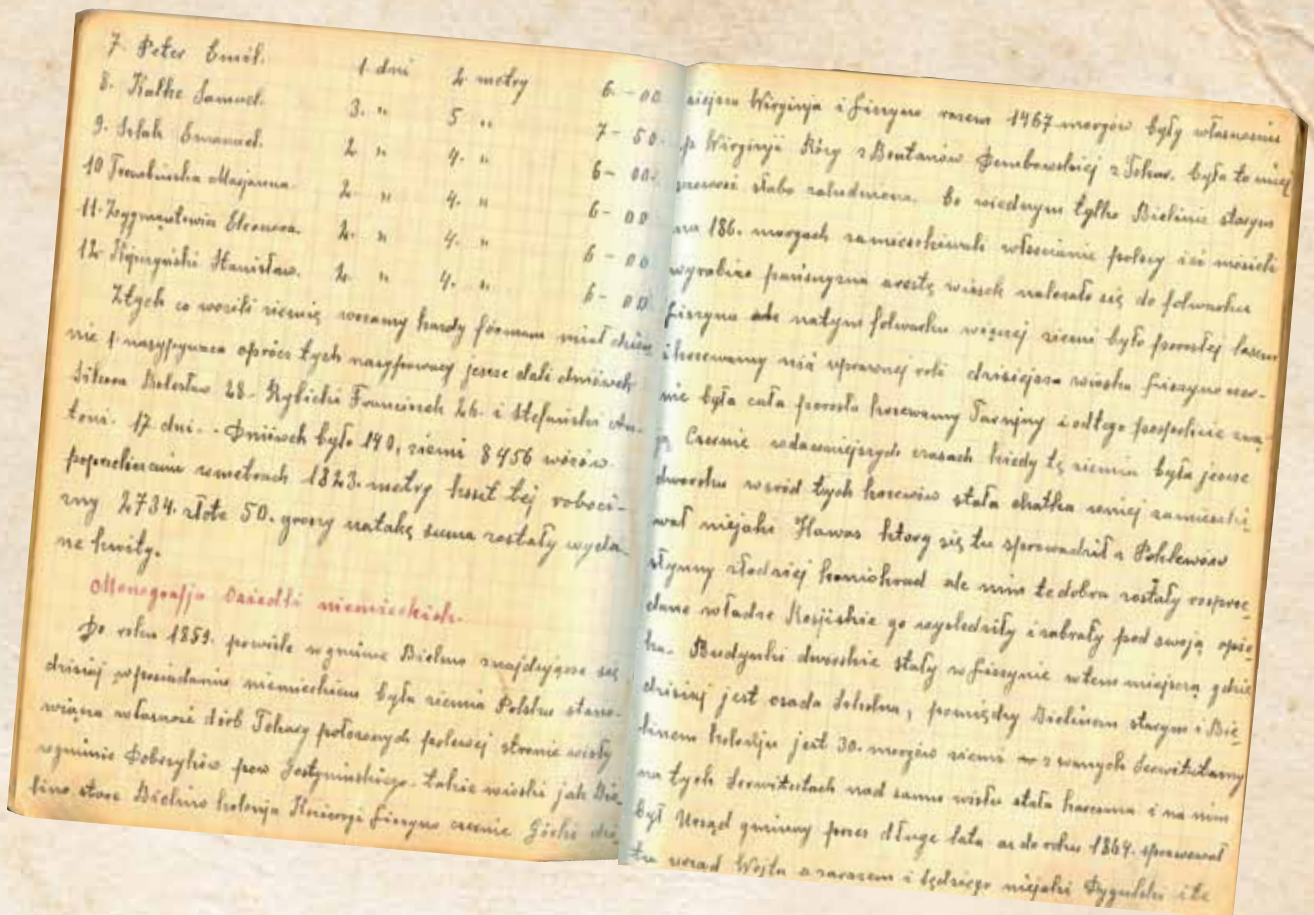 7. Peter Emil. 1. dni 2. metry 6.-00.
8. Kalke Samuel. 3. " 5 " 7-50.
9. Selak Emanuel. 2 " 4. " 6-00.
10 Trembińska Marjanna. 2. " 4. " 6-00
11. Zygmontowia Eleonora. 2. " 4. " 6-00
12. Stanisław. 2. " 4. " 6-00
Ztych co wozili ziemię wozamy kazdy fórman miał dzien
nie 1 nasypywacza oprócz tych nasypowacy jesze dali dniówek
Sikora Bolesław 28. Rybicki Franciszek 26. i Stefański An-
toni. 17. dni. - Dniówek było 140, ziemi 8456 wozów
popreliczeniu wmetrach 1823. metry koszt tej roboci-
zny 2734. złote 50. groszy natakę suma zostały wyda-
ne kwity.
Monografja Osiedli niemieckich.
Do roku 1859. powiśle wgminie Bielino znajdujące się
dzisiaj wposiadaniu niemieckiem była ziemia Polska stano-
wiąca własność dób Tokary położonych polewej stronie wisły
wgminie Dobrzyków pow Gostynińskiego. takie wioski jak Bie-
lino stare Bielino kolonja Liszyno czernie Górki dzi-
siejsza Wirginja i Liszyno razem 1467 morgów były własnoscia
p Wirginji Róży z Bontanów Dembowskiej z Tokar. była to miej
scowość słabo zaludniona. bo wiednym tylko Bielinie starym
na 186. morgach zamieszkiwali włoscianie polscy ici mósieli
wyrobiac pańszyzna aresztę wiosek nalezało się do folwarku
Liszyno natym folwarku więcej ziemi było porosłej lasem
ikozewamy niż uprawnej roli dzisiejsza wioska Liszyno
nie była cała porosła kozewamy Tarniny i odtego pospolicie zwa
ją Czernie wdawniejszych czasach kiedy tę ziemia była jesze
dworska wsród tych kozewiów stała chatka wniej zamieszki
wał niejaki Hawas ktory się tu sprowadził z Pohlewów
słynny złodziej koniokrad ale nim te dobra zostały rospsze
dane władze Rosjiskie go wysledziły i zabrały pod swoją opie
kę. Budynki dworskie stały w Liszynie wtem miejscu gdzie
dzisiaj jest osada Szkolna, pomiędzy Bielinem starym i Bie
linem kolonju jest 30. morgów ziemi zwanych Serwitutamy
na tych Serwitutach nad samo wisło stała karczma i na nim
był Urząd gminny przez długe lata az do roku 1864. sprawował
tu urząd Wójta a zarazem i sędziego niejaki Dygulski i te